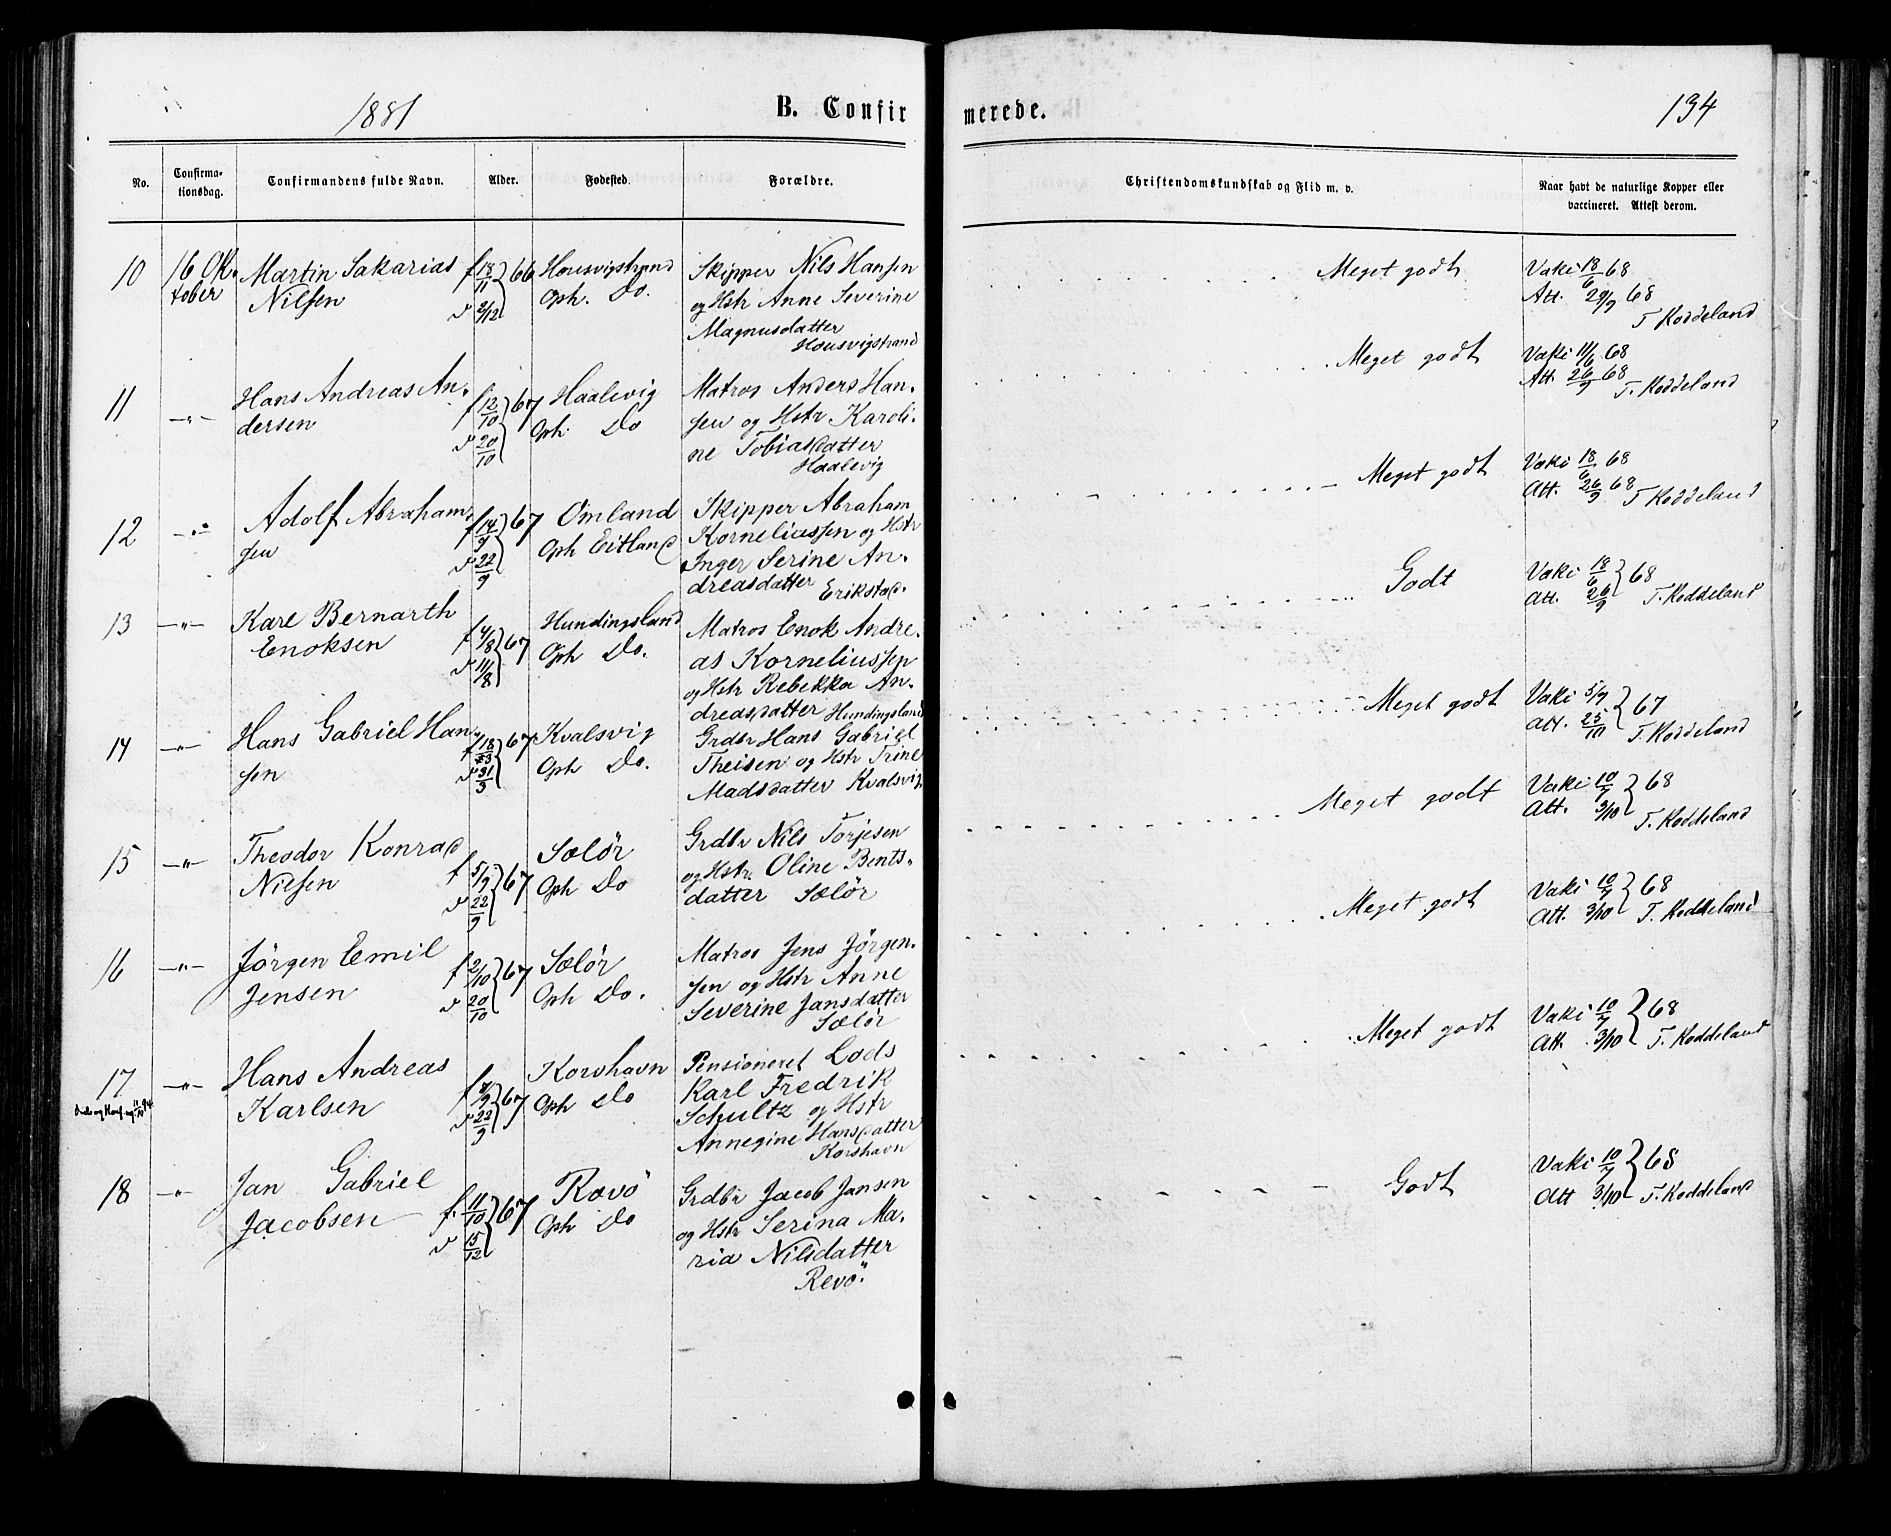 1881 B. Confirmerede. 134
No. Confirmationsdag. Confirmandens fulde Navn. Alder. Fødested. Forældre. Christendomskundskab og Flid m. v. Naar havt de naturlige Kopper eller vaccineret. Attest derom.
10 16 Oktober Martin Sakarias Nilsen f 18/11 66 v 2/12 Housvigstrand Oph. Do. Skipper Nils Hansen og Hstr Anne Severine Magnusdatter Housvigstrand Meget godt Vaki 18/6 68 Att. 29/9 68 T. Koddeland
11 -"- Hans Andreas Andersen f 12/10 67 v 20/10 Haalevig Oph. Do Matros Anders Hansen og Hstr Karoline Tobiasdatter Haalevig Meget godt Vaki 11/6 68 Att. 26/9 68 T. Koddeland
12 -"- Adolf Abrahamsen f 14/9 67 v 22/9 Omland Oph Eitland Skipper Abraham Korneliussen og Hstr Inger Serine Andreasdatter Erikstad. Meget godt Vaki 18/6 68 Att. 26/9 68 T Koddeland
13 -"- Karl Bernarth Enoksen f 4/8 67 v 11/8 Hundingsland Oph Do. Matros Enok Andreas Korneliussen og Hstr Rebekka Andreasdatter Hundingsland Godt Vaki 18/6 Att. 26/9 68 T. Koddeland
14 -"- Hans Gabriel Hansen f 18/3 67 v 31/3 Kvalsvig Oph Do. Grdbr Hans Gabriel Theisen og Hstr Trine Madsdatter Kvalsvig Meget godt Vaki 5/7 Att. 25/10 67 T. Koddeland
15 -"- Theodor Konrad Nilsen f 5/9 67 v 22/9 Sælör Oph Do Grdbr Nils Torjesen og Hstr. Oline Bentsdatter Sælör Meget godt Vaki 10/7 Att. 3/10 68 T. Koddeland
16 -"- Jörgen Emil Jensen f 2/10 67 v 20/10 Sælör Oph Do. Matros Jens Jörgensen og Hstr Anne Severine Jansdatter Sælör Meget godt Vaki 10/7 Att. 3/10 68 T. Koddeland
17 -"- Hans Andreas Karlsen f 7/9 67 v 22/9 Korshavn Oph Do Pensioneret Lods Karl Fredrik Schultz og Hstr Annegine Hansdatter Korshavn Meget godt Vaki 10/7 Att. 3/10 68 T. Koddeland
18 -"- Jan Gabriel Jacobsen f. 11/10 67 v 15/12 Rævö Oph Do Grdbr Jacob Jansen og Hstr Serina Maria Nilsdatter Revö. Godt Vaki 10/7 Att 3/10 68 T. Koddeland